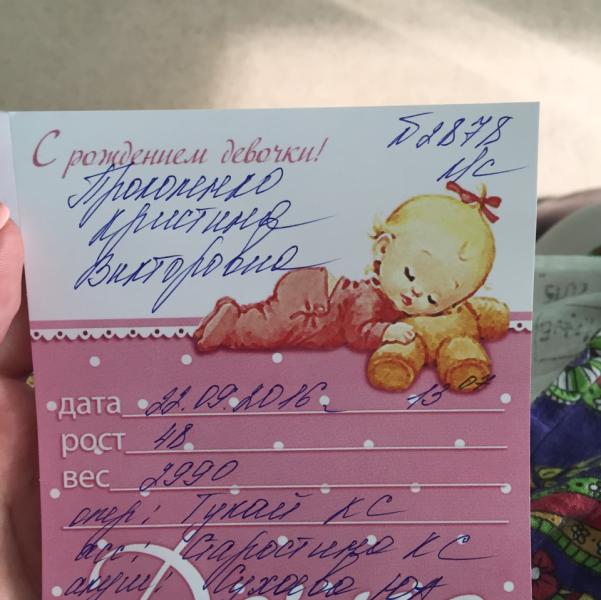 С рождением девочки!
№2878
к/с
Прокопенко
Кристина
Викторовна
дата 22.09.2016 13 07
рост 48
вес 2990
опер: Тукай КС
асс: Старостина КС
акуш: Сухоева ЮА